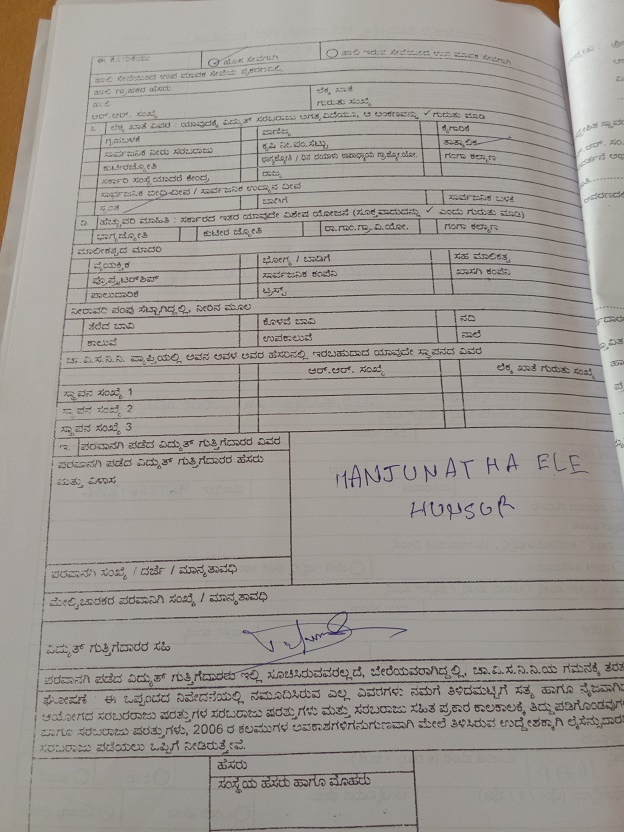 ಈ ಕೋರಿಕೆಯು ಹೊಸ ಸೇವೆಗಾಗಿ ಹಾಲಿ ಇರುವ ಸೇವೆಯಿಂದ ಉಪ ಮಾಪಕ ಸೇವೆಗಾಗಿ
ಹಾಲಿ ಸೇವೆಯಿಂದ ಉಪ ಮಾಪಕ ಸೇವೆಯ ಪ್ರಕರಣದಲ್ಲಿ
ಹಾಲಿ ಗ್ರಾಹಕರ ಹೆಸರು
ಹಾಲಿ ಲೆಕ್ಕ ಖಾತೆ
ಆರ್.ಆರ್. ಸಂಖ್ಯೆ ಗುರುತು ಸಂಖ್ಯೆ
ಲೆಕ್ಕ ಖಾತೆ ವಿವರ : ಯಾವುದಕ್ಕೆ ವಿದ್ಯುತ್ ಸರಬರಾಜು ಅಗತ್ಯವಿದೆಯೋ, ಆ ಅಂಕಣವನ್ನು ✓ ಗುರುತು ಮಾಡಿ
ಗೃಹಬಳಕೆ ವಾಣಿಜ್ಯ ಕೈಗಾರಿಕೆ
ಸಾರ್ವಜನಿಕ ನೀರು ಸರಬರಾಜು ಕೃಷಿ ನೀ.ಪಂ.ಸೆಟ್ಟು, ತಾತ್ಕಾಲಿಕ
ಕುಟೀರಜ್ಯೋತಿ ಭಾಗ್ಯಜ್ಯೋತಿ / ದಿನ ದಯಾಳು ಉಪಾಧ್ಯಾಯ ಗ್ರಾ.ಜ್ಯೋ.ಯೋ. ಗಂಗಾ ಕಲ್ಯಾಣ
ಸರ್ಕಾರಿ ಸಂಸ್ಥೆಯಾದರೆ ಕೇಂದ್ರ ರಾಜ್ಯ
ಸಾರ್ವಜನಿಕ ಬೀದಿ ದೀಪ / ಸಾರ್ವಜನಿಕ ಉದ್ಯಾನ ದೀಪ
ಸ್ವಂತ ಬಾಡಿಗೆ ಸಾರ್ವಜನಿಕ ಬಳಕೆ
ಹೆಚ್ಚುವರಿ ಮಾಹಿತಿ : ಸರ್ಕಾರದ ಇತರ ಯಾವುದೇ ವಿಶೇಷ ಯೋಜನೆ (ಸೂಕ್ತವಾದುದನ್ನು ✓ ಎಂದು ಗುರುತು ಮಾಡಿ)
ಭಾಗ್ಯಜ್ಯೋತಿ ಕುಟೀರ ಜ್ಯೋತಿ ರಾ.ಗಾಂ.ಗ್ರಾ.ವಿ.ಯೋ. ಗಂಗಾ ಕಲ್ಯಾಣ
ಮಾಲೀಕತ್ವದ ಮಾದರಿ
ವೈಯಕ್ತಿಕ ಭೋಗ್ಯ / ಬಾಡಿಗೆ ಸಹ ಮಾಲಿಕತ್ವ
ಪ್ರೊಪ್ರೈಟರ್‌ಶಿಪ್ ಸಾರ್ವಜನಿಕ ಕಂಪೆನಿ ಖಾಸಗಿ ಕಂಪೆನಿ
ಪಾಲುದಾರಿಕೆ ಟ್ರಸ್ಟ್
ನೀರಾವರಿ ಪಂಪು ಸೆಟ್ಟಾಗಿದ್ದಲ್ಲಿ, ನೀರಿನ ಮೂಲ
ತೆರೆದ ಬಾವಿ ಕೊಳವೆ ಬಾವಿ ನದಿ
ಕಾಲುವೆ ಉಪಕಾಲುವೆ ನಾಲೆ
ಚಾ.ವಿ.ಸ.ನಿ.ನಿ. ವ್ಯಾಪ್ತಿಯಲ್ಲಿ ಅವನ ಅವಳ ಅವರ ಹೆಸರಿನಲ್ಲಿ ಇರಬಹುದಾದ ಯಾವುದೇ ಸ್ಥಾಪನದ ವಿವರ
ಆರ್.ಆರ್. ಸಂಖ್ಯೆ ಲೆಕ್ಕ ಖಾತೆ ಗುರುತು ಸಂಖ್ಯೆ
ಸ್ಥಾಪನ ಸಂಖ್ಯೆ 1
ಸ್ಥಾಪನ ಸಂಖ್ಯೆ 2
ಸ್ಥಾಪನ ಸಂಖ್ಯೆ 3
ಇ. ಪರವಾನಗಿ ಪಡೆದ ವಿದ್ಯುತ್ ಗುತ್ತಿಗೆದಾರರ ವಿವರ
ಪರವಾನಗಿ ಪಡೆದ ವಿದ್ಯುತ್ ಗುತ್ತಿಗೆದಾರರ ಹೆಸರು
ಮತ್ತು ವಿಳಾಸ
MANJUNATHA ELE
HUNSUR
ಪರವಾನಗಿ ಸಂಖ್ಯೆ / ದರ್ಜೆ / ಮಾನ್ಯತಾವಧಿ
ಮೇಲ್ವಿಚಾರಕರ ಪರವಾನಿಗಿ ಸಂಖ್ಯೆ / ಮಾನ್ಯತಾವಧಿ
ವಿದ್ಯುತ್ ಗುತ್ತಿಗೆದಾರರ ಸಹಿ
ಪರವಾನಗಿ ಪಡೆದ ವಿದ್ಯುತ್ ಗುತ್ತಿಗೆದಾರರು ಇಲ್ಲಿ ಸೂಚಿಸಿರುವವರಲ್ಲದೆ, ಬೇರೆಯವರಾಗಿದ್ದಲ್ಲಿ, ಚಾ.ವಿ.ಸ.ನಿ.ನಿ.ಯ ಗಮನಕ್ಕೆ ತರತ
ಘೋಷಣೆ : ಈ ಒಪ್ಪಂದದ ನಿವೇದನೆಯಲ್ಲಿ ನಮೂದಿಸಿರುವ ಎಲ್ಲ ವಿವರಗಳು ನಮಗೆ ತಿಳಿದಮಟ್ಟಿಗೆ ಸತ್ಯ ಹಾಗೂ ನೈಜವಾಗಿದ
ಆಯೋಗದ ಸರಬರರಾಜು ಷರತ್ತುಗಳ ಸರಬರಾಜು ಷರತ್ತುಗಳು ಮತ್ತು ಸರಬರಾಜು ಸಹಿತ ಪ್ರಕಾರ ಕಾಲಕಾಲಕ್ಕೆ ತಿದ್ದುಪಡಿಗೊಂಡವುಗಳ
ಹಾಗೂ ಸರಬರಾಜು ಷರತ್ತುಗಳು, 2006 ರ ಕಲಮುಗಳ ಅವಕಾಶಗಳಿಗನುಗುಣವಾಗಿ ಮೇಲೆ ತಿಳಿಸಿರುವ ಉದ್ದೇಶಕ್ಕಾಗಿ ಲೈಸೆನ್ಸುದಾರ
ಸರಬರಾಜು ಪಡೆಯಲು ಒಪ್ಪಿಗೆ ನೀಡಿರುತ್ತೇವೆ.
ಹೆಸರು
ಸಂಸ್ಥೆಯ ಹೆಸರು ಹಾಗೂ ಮೊಹರು